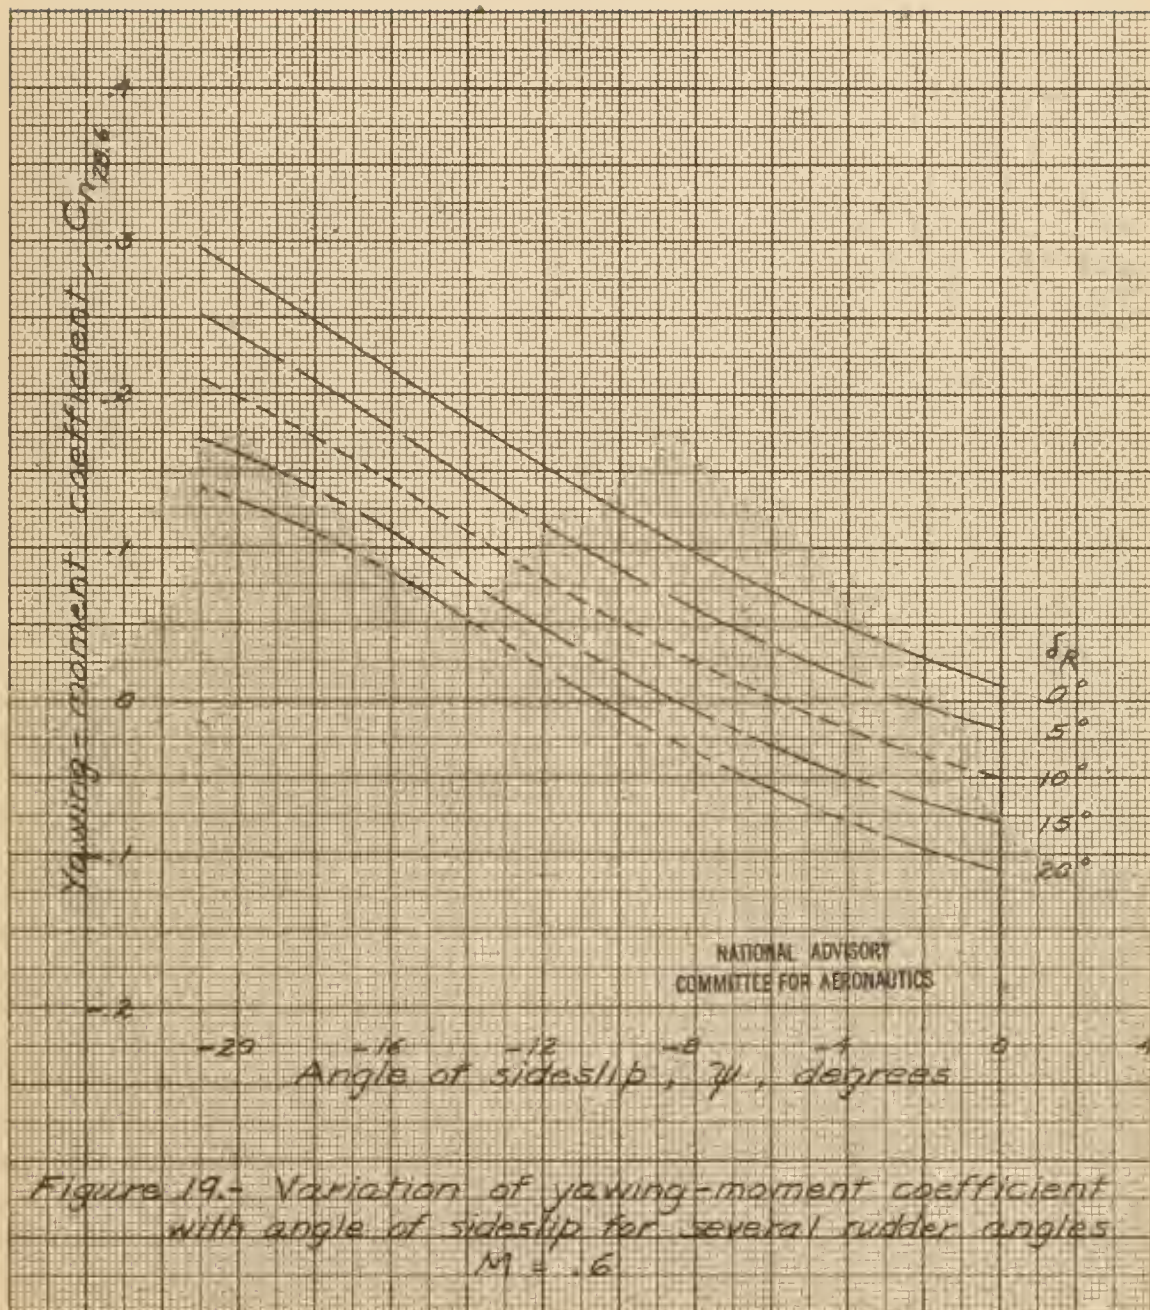 .4
.3
.2
.1
0
-.1
-.2
Yawing-moment coefficient, Cn28.6
δR
0°
5°
10°
15°
20°
NATIONAL ADVISORY
COMMITTEE FOR AERONAUTICS
-20 -16 -12 -8 -4 0 4
Angle of sideslip, ψ, degrees
Figure 19.- Variation of yawing-moment coefficient
with angle of sideslip for several rudder angles
M = .6